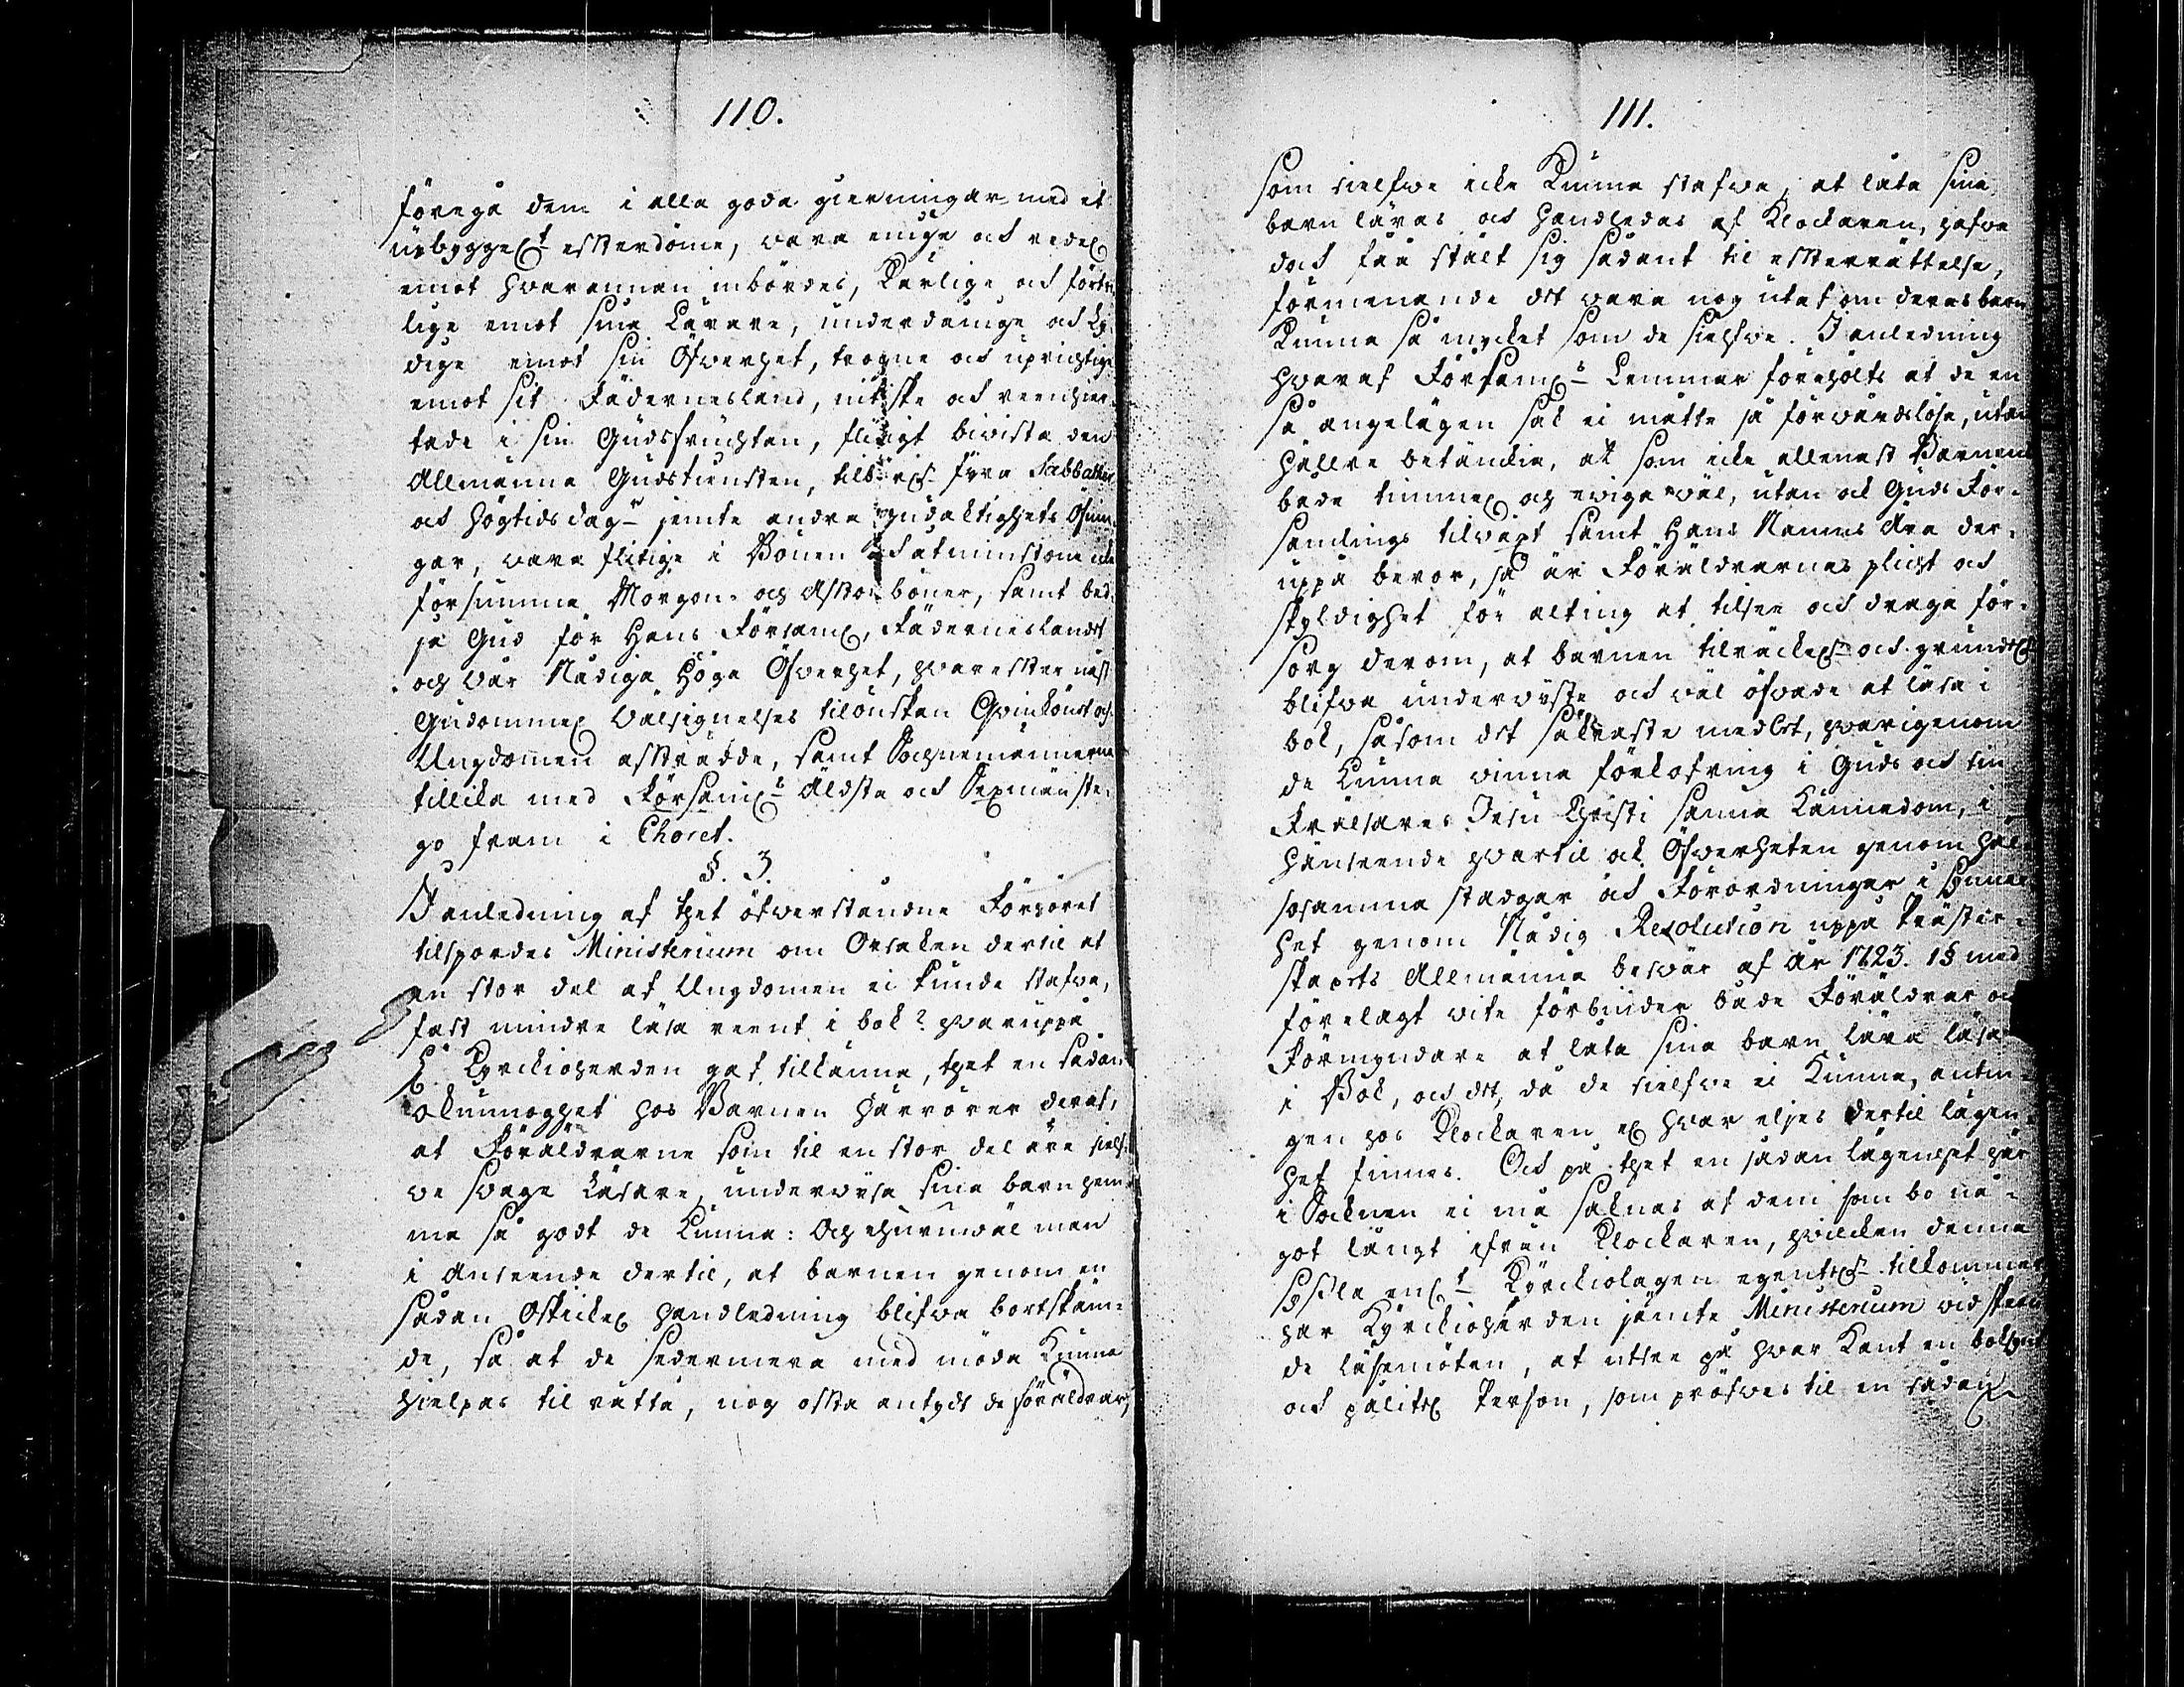 110.
föregå dem i alla goda gierningar med et
upbyggel:t efterdöme, vara enige och redel:
emot hvarannan inbördes, Kärlige och förtro
lige emot sine Lärare, underdånige och Ly-
dige emot sin Öfverhet, trogne och uprichtige
emot sit Fädernesland, nitiske och reenhier-
tade i sin Gudsfruchtan, fliteligt bivista den
Allmänna Gudstiensten, fira Sabbather
och Högtidsdag:r jemte andra gudaktighets Öfnin-
gar, vara flitige i Bönen och åtminstone icke
försumma Morgon- och Aftonböner, samt bed-
ja Gud för Hans Församl:, Fäderneslandet
och vår Nådiga Höga Öfverhet, hvarefter näst
Gudommel: Välsignelses tilönskan Qvinkönet och
Ungdomen afträdde, samt Sochnemännerne
tillika med Församl:s Äldsta och Sexmän ste-
go fram i Choret.
§. 3.
I anledning af thet öfverståndne Förhöret
tilspordes Ministerium om Orsaken dertil at
en stor del af Ungdomen ei kunde stafva,
fast mindre läsa reent i bok? hvaruppå
H:r Kyrckioherden gaf tillkänna, thet en sådan
okunnoghet hos Barnen härrörer deraf,
at Föräldrarne som til en stor del äro sielf-
ve svage Läsare, undervisa sina barn hem-
ma så godt de kunna: Och ehuruväl man
i Anseende dertil, at barnen genom en
sådan Oskickel: handledning blifva bortskäm-
de, så at de sedermera med möda kunna
hielpas til rätta, nog ofta antydt de föräldrar,
111.
som sielfve icke kunna stafva, at låta sina
barn läras och handledas af Klockaren, hafva
dock fåå stält sig sådant til efterrättelse,
förmenande det vara nog utaf om deras barn
kunna så mycket som de sielfve. I anledning
hvaraf Församl:s Lemmar föreholts at de en
så angelägen sak ei måtte så förvårdslösa, utan
hällre betänckia, at som icke allenast Barnens
både timmel: och eviga väl, utan ock Guds För-
samlings tilväxt samt Hans Namns Ära der-
uppå beror, så är Föräldrarnas plicht och
skyldighet för alting at tilsee och draga för-
sorg derom, at barnen tilräckel:n och grundel:n
blifva underviste och väl öfvade at läsa i
bok, såsom det säkraste medlet, hvarigenom
de kunna vinna förkofring i Guds och sin
Frälsares Jesu Christi sanna Kännedom, i
hänseende hvartil ock Öfverheten genom häl-
sosamma stadgar och Förordningar i synner-
het genom Nådig Resolution uppå Präster-
skapets Allmänna besvär af År 1723. 1§ med
förelagt vite förbinder både Föräldrar och
Förmyndare at låta sina barn lära läsa
i Bok, och det, då de sielfve ei kunna, antin-
gen hos Klockaren el: hvar eljes dertil lägen-
het finnes. Och på thet en sådan lägenhet här
i Socknen ei må saknas af dem som bo nå-
got långt ifrån Klockaren, hvilcken denna
syssla enl:t Kyrckiolagen egentel:n tilkommer
har Kyrckioherden jämte Ministerium vid skeen
de läsemöten, at utsee på hvar Kant en bok
och pålitel: Person, som pröfves til en sådan